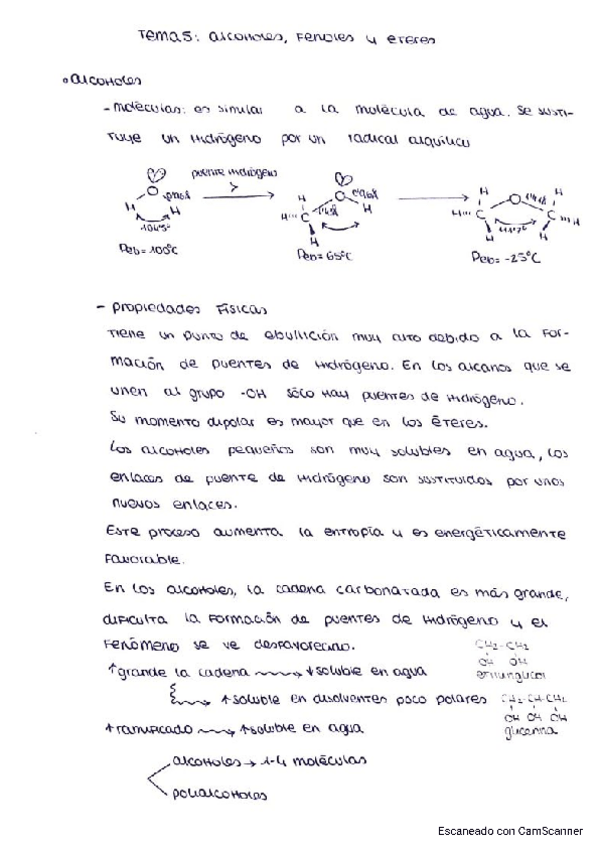 Tema5: Alcoholes, Fenoles y eteres
• Alcoholes
- moléculas: es similar a la molécula de agua. Se susti-
tuye un hidrógeno por un radical alquílico
puente hidrógeno
O 0.96Å H H 104.5°
H C 1.43Å O 0.96Å H H H
H C O C H H H H
Peb = 100°C Peb = 65°C Peb = -25°C
- Propiedades Físicas
Tiene un punto de ebullición muy alto debido a la for-
mación de puentes de hidrógeno. En los alcanos que se
unen al grupo -OH sólo hay puentes de hidrógeno.
Su momento dipolar es mayor que en los éteres.
Los alcoholes pequeños son muy solubles en agua, los
enlaces de puente de hidrógeno son sustituidos por unos
nuevos enlaces.
Este proceso aumenta la entropía y es energéticamente
favorable.
En los alcoholes, la cadena carbonatada es más grande,
dificulta la formación de puentes de hidrógeno y el
fenómeno se ve desfavorecido.
CH2-CH2
OH OH
etilinglicol
↑grande la cadena ⟿ ↓soluble en agua
⟿ ↑soluble en disolventes poco polares
CH2-CH-CH2
OH OH OH
glicerina
↑ramificado ⟿ ↑soluble en agua
alcoholes → 1-4 moléculas
polialcoholes
Escaneado con CamScanner